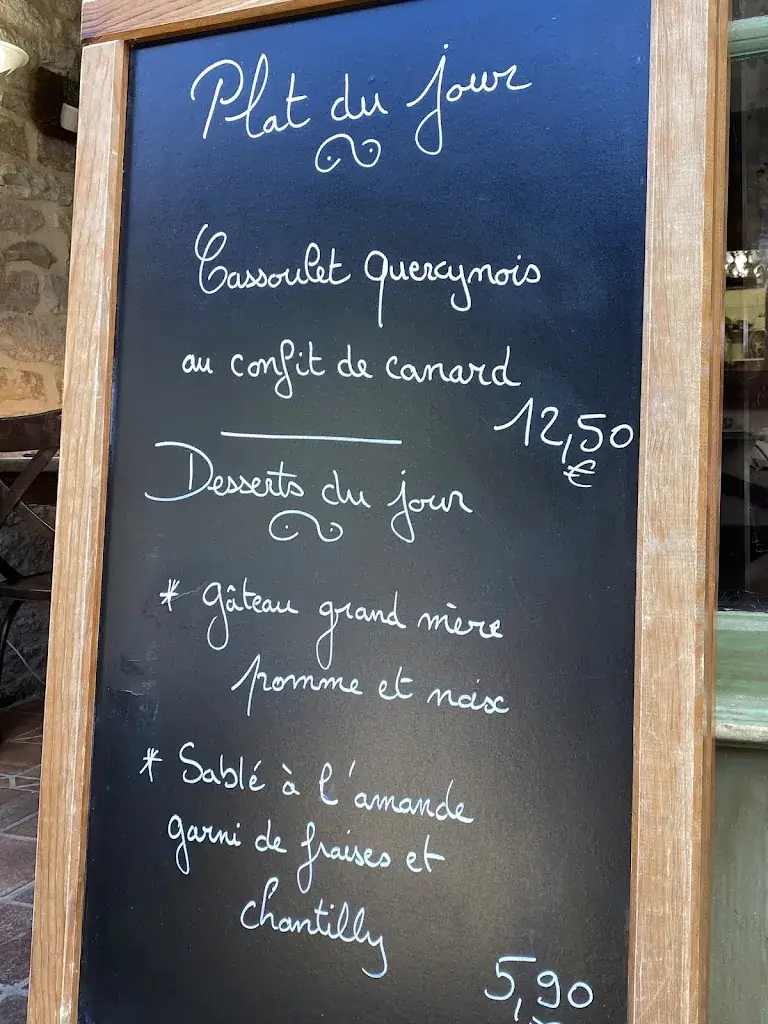 Plat du jour
Cassoulet Quercynois
au confit de canard
12,50
€
Desserts du jour
* Gâteau grand mère
pomme et noix
* Sablé à l'amande
garni de fraises et
chantilly
5,90